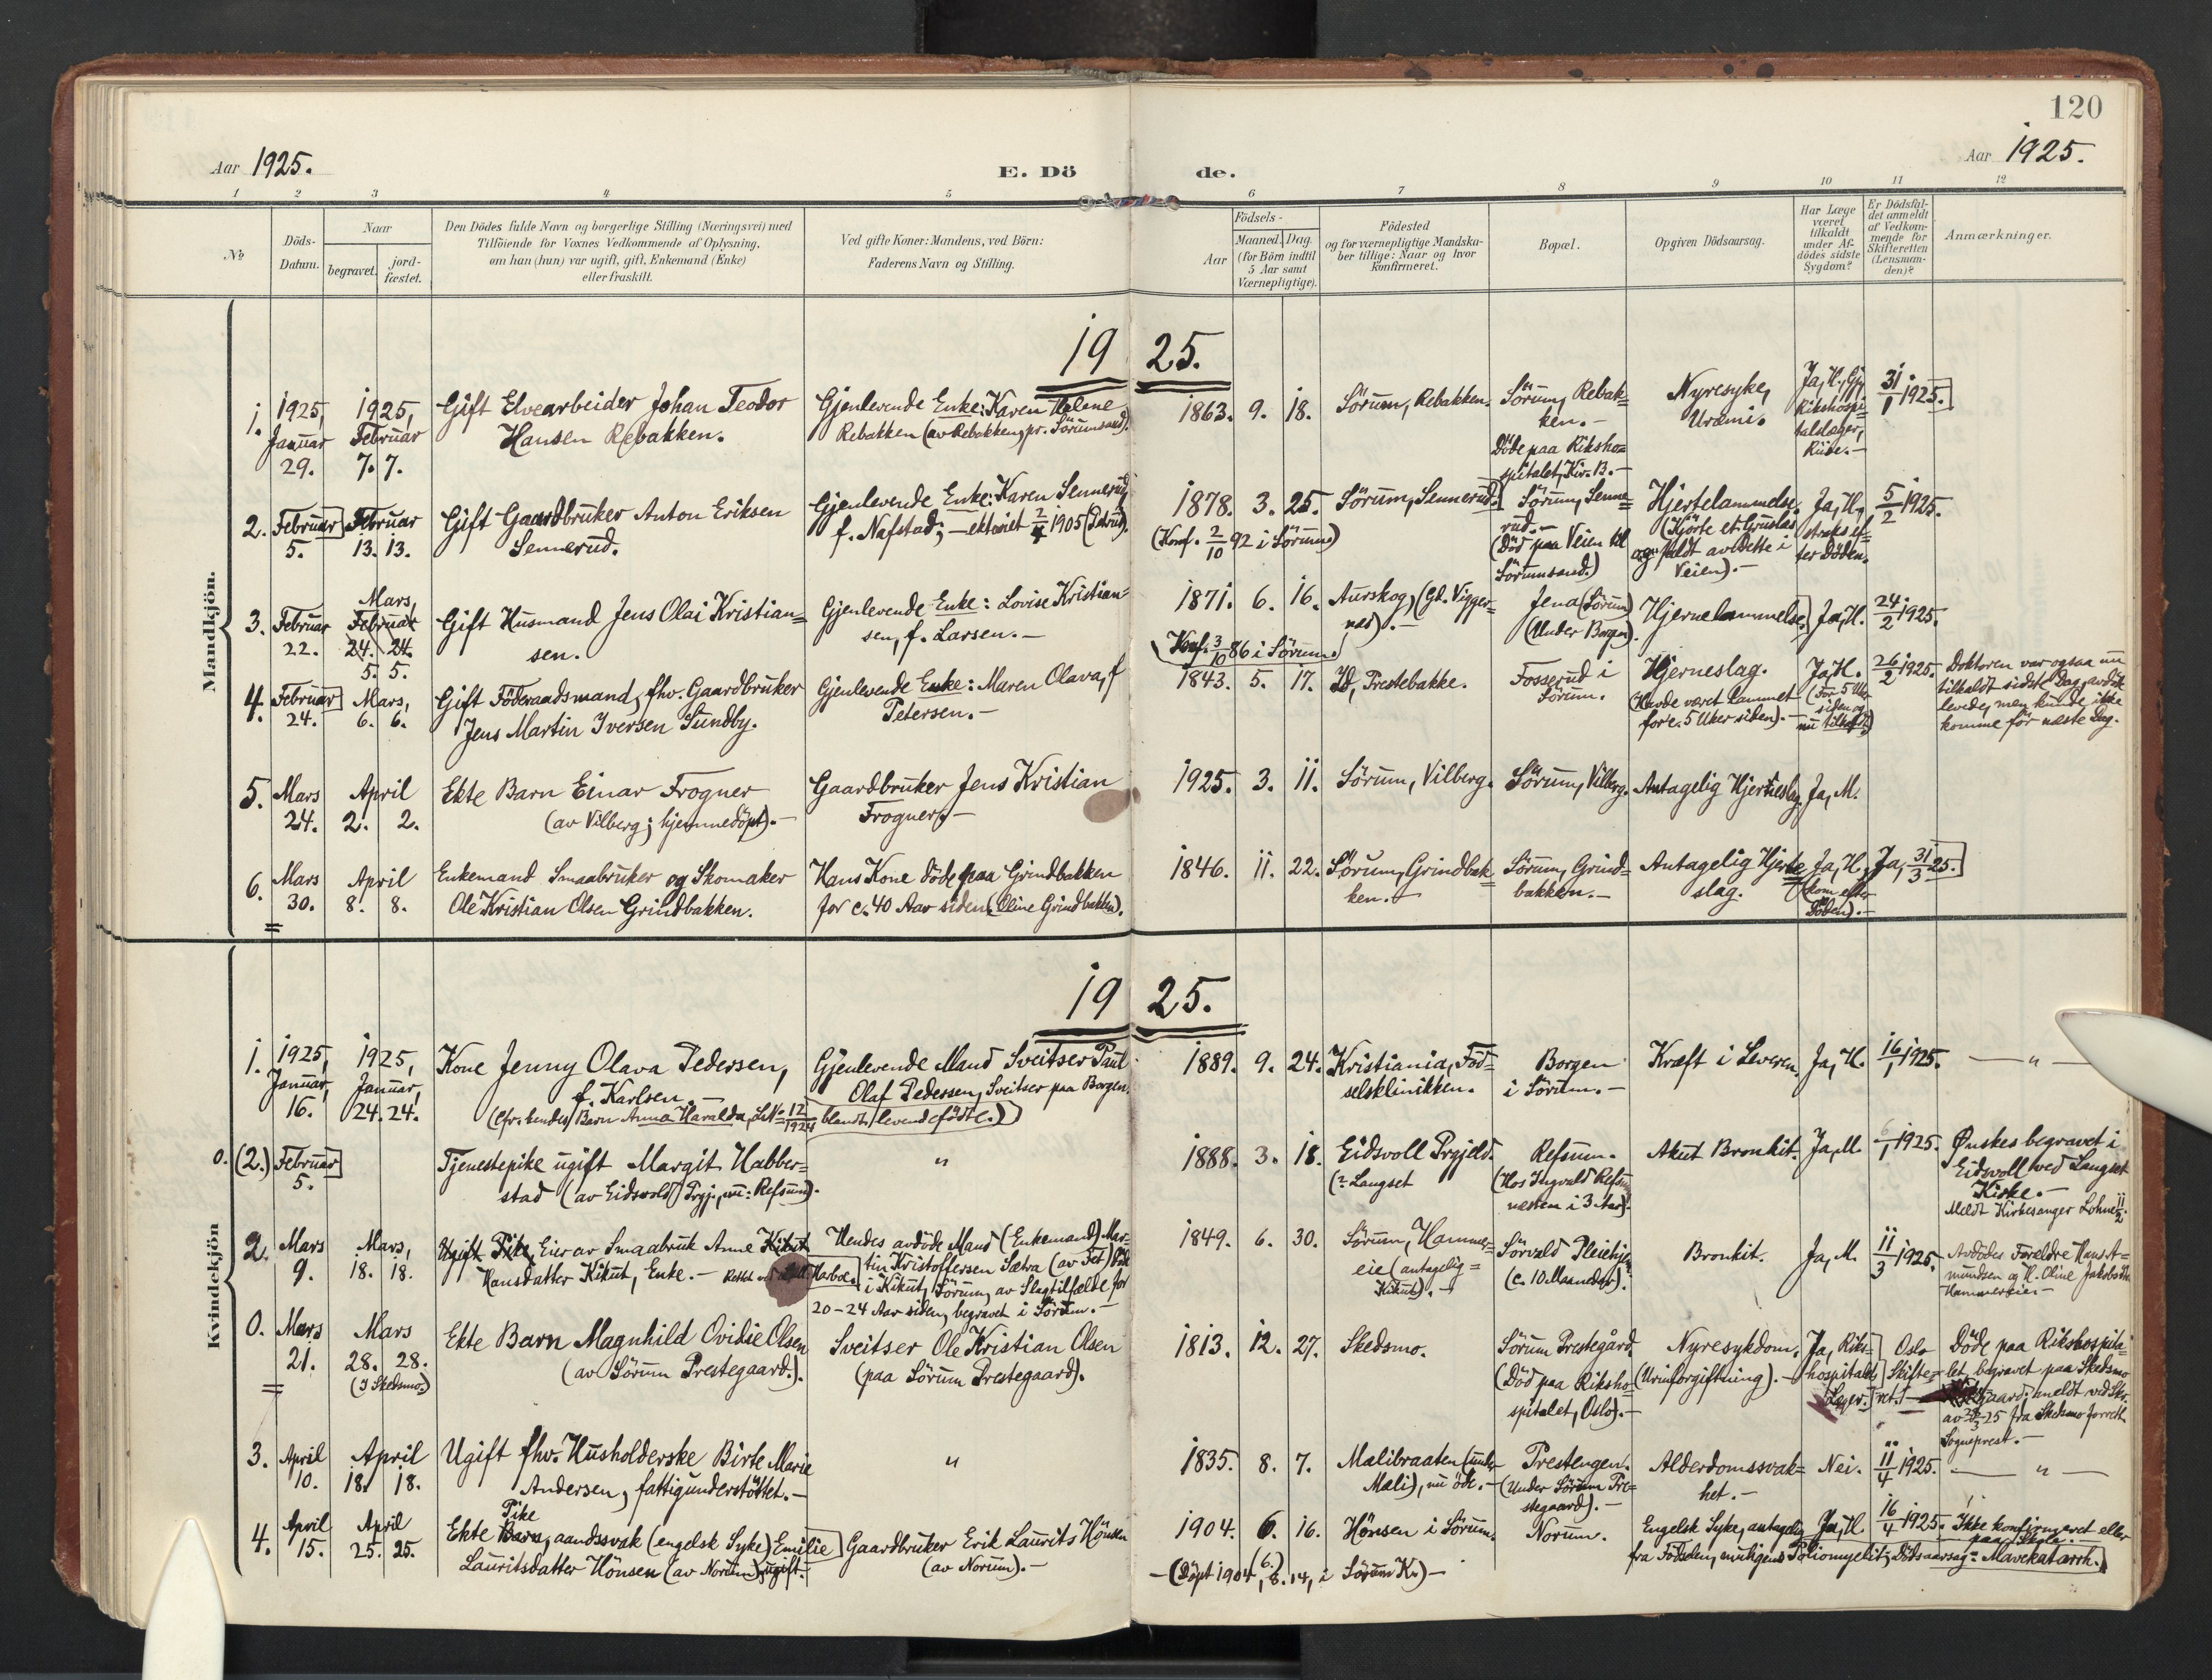 120
Aar 1925.
E. Dö de.
Aar 1925.
1 2 3 4 5 6 7 8 9 10 11 12
No
Döds-
Datum.
Naar
begravet.
jord-
fæstet.
Den Dödes fulde Navn og borgerlige Stilling (Næringsvei) med
Tilföiende for Voxnes Vedkommende af Oplysning,
om han (hun) var ugift, gift, Enkemand (Enke)
eller fraskilt.
Ved gifte Koner: Mandens, ved Börn:
Faderens Navn og Stilling.
Födsels-
Aar
Maaned.
Dag.
(for Börn indtil
5 Aar samt
Værnepligtige).
Födested
og for værnepligtige Mandska-
ber tillige: Naar og hvor
konfirmeret.
Bopæl.
Opgiven Dödsaarsag.
Har Læge
været
tilkaldt
under Af-
dödes sidste
Sygdom?
Er Dödsfal-
det anmeldt
af Vedkom-
mende for
Skifteretten
(Lensman-
den)?
Anmærkninger.
Mandkjön.
1925.
1.
1925,
Januar
29.
1925,
Februar
7. 7.
Gift Elvearbeider Johan Teodor
Hansen Rebakken.
Gjenlevende Enke: Karen Helene
Rebakken (av Rebakken, pr. Sörumsand).
1863. 9. 18.
Sörum, Rebakken.
Sörum, Rebak=
ken.-
Döde paa Riksho=
spitalet, Kir. B.-
Nyresyke,
Uræmi.
Ja, H.,
Rikshospi=
talslæger,
31/1 1925.
2.
Februar
5.
Februar
13. 13.
Gift Gaardbruker Anton Eriksen
Sennerud.
Gjenlevende Enke: Karen Sennerud,
f. Nafstad; - ektoviet 2/4 1905
1878. 3. 25.
(Konf. 2/10 92 i Sörum)
Sörum, Sennerud.
Sörum, Senne=
rud.-
(Död paa Veien til
Sörumsand.)
Hjertelammelse.
(Kjörte et Gruslas
og faldt av dette i
Veien).-
Ja, H.,
straks ef=
ter Döden.
5/2 1925.
3.
Februar
22.
Mars,
Februar
24. 24.
5. 5.
Gift Husmand Jens Olai Kristian=
sen.
Gjenlevende Enke: Lovise Kristian=
sen, f. Larsen.-
1871. 6. 16.
Konf. 3/10 86 i Sörum.
Aurskog, (Gd. Vigger=
nes).-
Jena (Sörum)
(Under Borgen).
Hjernelammelse.
Ja, H.
24/2 1925.
4.
Februar
24.
Mars,
6. 6.
Gift Föderaadsmand, fhv. Gaardbruker
Jens Martin Iversen Sundby.
Gjenlevende Enke: Maren Olava, f.
Petersen.-
1843. 5. 17.
Id, Prestebakke.
Fosserud i
Sörum.
Hjerneslag.
(Havde været lammet
for c. 5 Uker siden).-
Ja, H.
(For 5 Uker
siden og
nu tilkaldt)
26/2 1925.
Doktoren var ogsaa nu
tilkaldt sidste Dag, avdöde
levede, men kunde ikke
komme för næste Dag.
5.
Mars
24.
April
2. 2.
Ekte Barn Einar Frogner
(av Vilberg; hjemmedöpt).-
Gaardbruker Jens Kristian
Frogner.-
1925. 3. 11.
Sörum, Vilberg.
Sörum, Vilberg.
Antagelig Hjerteslag.
Ja, M.
6.
Mars
30.
April
8. 8.
Enkemand Smaabruker og Skomaker
Ole Kristian Olsen Grindbakken.
Hans Kone döde paa Grindbakken
for c. 40 Aar siden (Oline Grindbakken).
1846. 11. 22.
Sörum, Grindbak=
ken.-
Sörum, Grind=
bakken.-
Antagelig Hjerte=
slag.
Ja, H.,
(kom efter
Döden).-
Ja, 31/3 25.
Kvindekjön
1925.
1.
1925,
Januar,
16.
1925,
Januar,
24. 24.
Kone Jenny Olava Pedersen,
f. Karlsen.-
(Cfr. hendes Barn Anna Haralda, L. No 12/1924 blandt levendefödte.)
Gjenlevende Mand Sveitser Paul
Olaf Pedersen, Sveitser paa Borgen.
1889. 9. 24.
Kristiania, Föd=
selsklinikken.
Borgen
i Sörum.-
Kræft i Leveren.
Ja, H.
16/1 1925.
— „ —
0. (2.)
Februar
5.
Tjenestepike ugift Margit Habber=
stad (av Eidsvold Prgj., nu: Refsum).
„
1888. 3. 18.
Eidsvoll Prgjeld.
(? Langset
Refsum.
(Hos Ingvald Refsum
næsten i 3 Aar).
Akut Bronkit.
Ja, M.
1925.
Ønskes begravet i
Eidsvoll ved Langset
Kirke.-
Meldt Kirkesanger
2.
Mars
9.
Mars,
18. 18.
Ugift Pike, Eier av Smaabruk Anne Kikut
Hansdatter Kikut, Enke.-
Hendes avdöde Mand (Enkemand) Mar=
tin Kristoffersen Sætra (av Fet) döde
i Kikut, Sörum, av Slagtilfælde for
20-24 Aar siden, begravet i Sörum.-
1849. 6. 30.
Sörum, Hammer=
eie (antagelig=
Kikut).-
Sörvald Pleiehjem
(c. 10 Maaneder).
Bronkit.
Ja, M.
11/3 1925.
Avdödes Foreldre Hans A=
mundsen og H. Oline Jakobsdtr.
Hammereier-
0.
Mars
21.
Mars
28. 28.
(I Skedsmo.)
Ekte Barn Magnhild Ovidie Olsen
(av Sörum Prestegaard.).
Sveitser Ole Kristian Olsen
(paa Sörum Prestegaard).
1813. 12. 27.
Skedsmo.
Sörum Prestegård.
(Död paa Riksho=
spitalet, Oslo).-
Nyresykdom.
(Urinforgiftning).-
Ja, Riks=
hospitalets
Læger.
Oslo
Skifte=
ret.
Döde paa Rikshospita=
let, begravet paa Skedsmo
meldt ved Skr.
av 25 fra Skedsmo
Sogneprest.-
3.
April
10.
April
18. 18.
Ugift fhv. Husholderske Birte Marie
Andersen, fattigunderstöttet.-
„
1835. 8. 7.
Malibraaten (under
Mali), nu öde.-
Prestengen.
(Under Sörum Pre=
stegaard).-
Alderdomssvak=
het.-
Nei.
11/4 1925.
— „ —
4.
April
15.
April
25. 25.
Pike
Ekte Barn, aandssvak (engelsk Syke) Emilie
Lauritsdatter Hönsen (av Norum), ugift.-
Gaardbruker Erik Laurits Hönsen
(av Norum).-
1904. 6. 16.
-(Döpt 1904, 8. 14, i Sörum K.)-
Hönsen i Sörum.
Norum.
Engelsk Syke, antagelig
fra Födselen, muligens Poliomyelit; Dödsaarsag: Mavekatarrh.)
Ja, H.
16/4 1925.
Ikke konfirmeret eller
paa Skole.